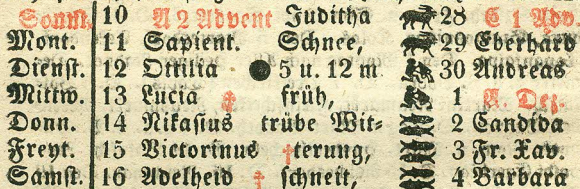 Sonnt. 10 A 2 Advent Juditha 28 C 1 Adv
Mont. 11 Sapient. Schnee, 29 Eberhard
Dienst. 12 Ottilia ● 5 u. 12 m 30 Andreas
Mittw. 13 Lucia früh, 1 A. Dez.
Donn. 14 Nikasius trübe Wit-
2 Candida
Freyt. 15 Victorinus † terung, 3 Fr. Xav.
Samst. 16 Adelheid † schneit, 4 Barbara